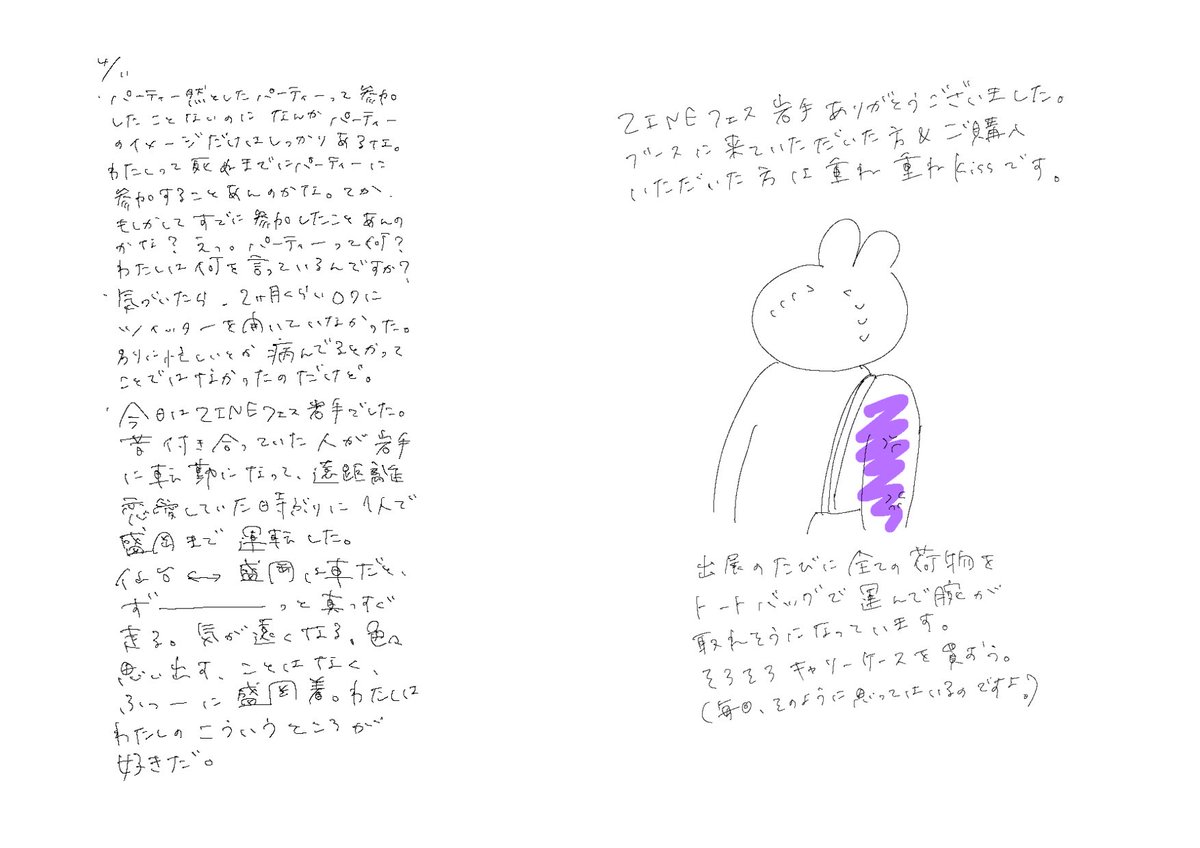 4/11
・パーティー然としたパーティーって参加
したことないのになんかパーティー
のイメージだけはしっかりあるな。
わたしって死ぬまでにパーティーに
参加することあんのかな。てか、
もしかしてすでに参加したことあんの
かな？えっ。パーティーって何？
わたしは何を言っているんですか？
・気づいたら、2ヶ月くらいロクに
ツイッターを開いていなかった。
別に忙しいとか病んでるとかって
ことではなかったのだけど。
・今日はZINEフェス岩手でした。
昔付き合っていた人が岩手
に転勤になって、遠距離
恋愛していた時ぶりに1人で
盛岡まで運転した。
仙台⟷盛岡は車だと、
ず――――っと真っすぐ
走る。気が遠くなる。色々
思い出す、ことはなく、
ふつーに盛岡着。わたしは
わたしのこういうところが
好きだ。
ZINEフェス岩手ありがとうございました。
ブースに来ていただいた方&ご購入
いただいた方は重ね重ねkissです。
出展のたびに全ての荷物を
トートバッグで運んで腕が
取れそうになっています。
そろそろキャリーケースを買おう。
(毎回、そのように思ってはいるのですよ。)